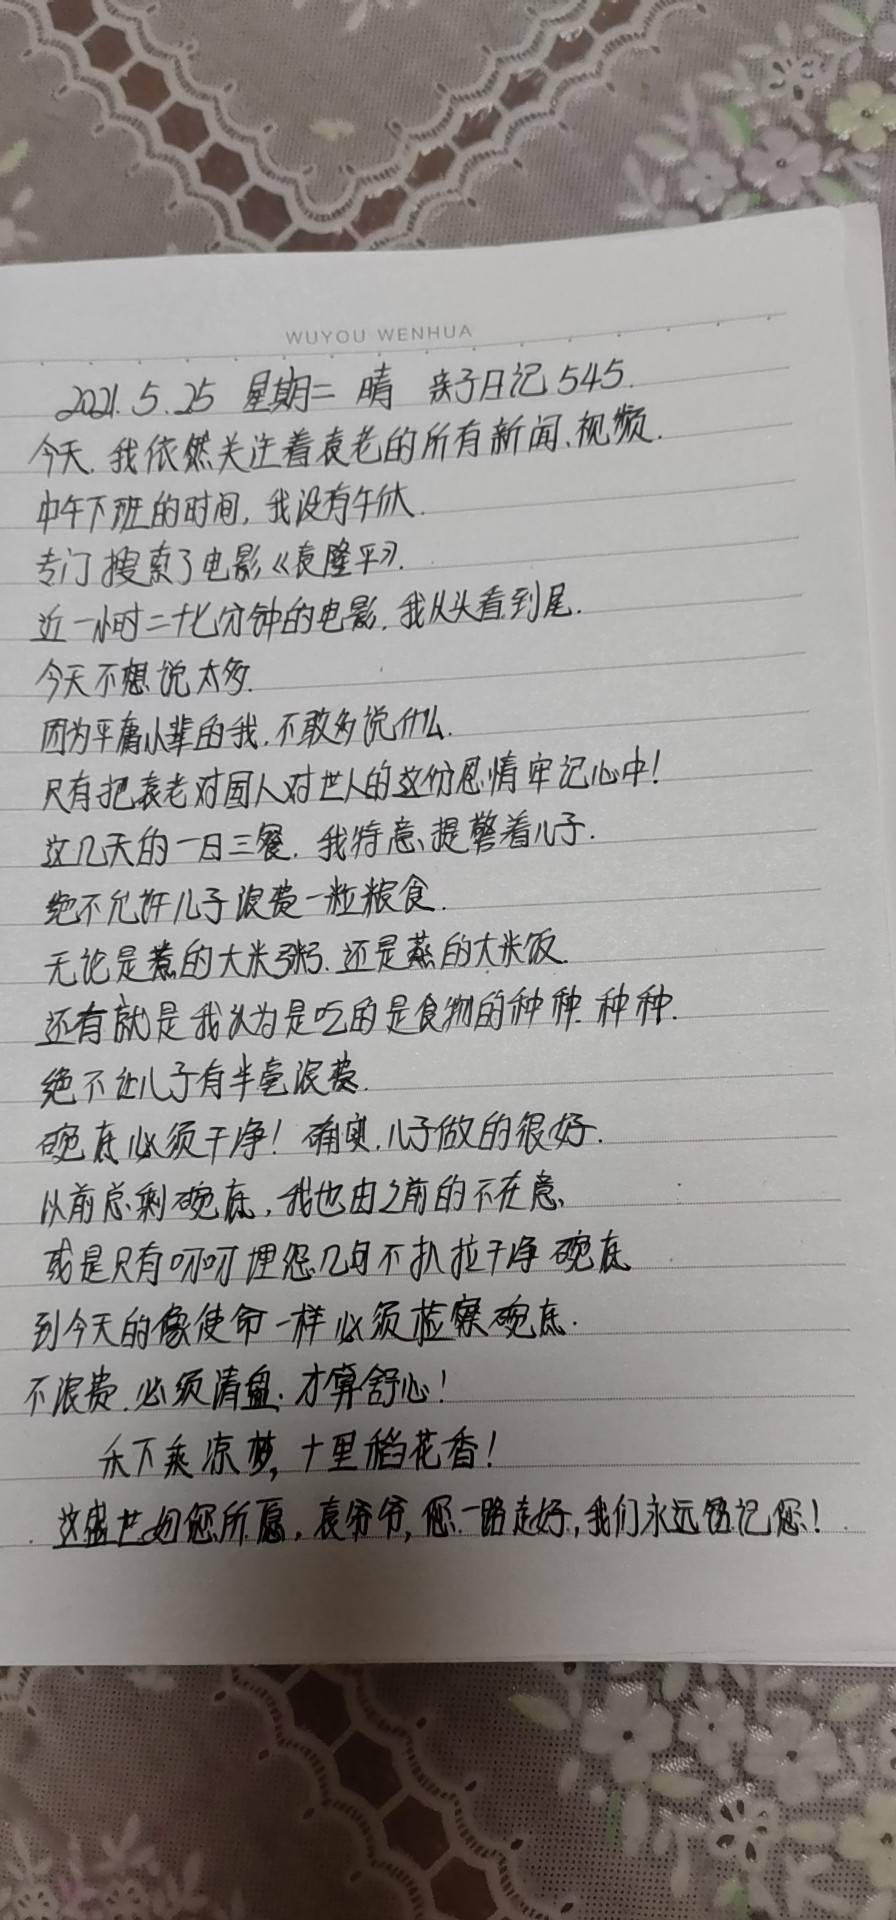 WUYOU WENHUA
2021.5.25 星期二 晴 亲子日记545.
今天.我依然关注着袁老的所有新闻、视频.
中午下班的时间,我没有午休.
专门搜索了电影《袁隆平》.
近一小时二十七分钟的电影.我从头看到尾.
今天不想说太多.
因为平庸小辈的我.不敢多说什么.
只有把袁老对国人对世人的这份恩情牢记心中!
这几天的一日三餐.我特意、提警着儿子.
绝不允许儿子浪费一粒粮食.
无论是煮的大米粥.还是蒸的大米饭.
还有就是我认为是吃的是食物的种种.种种.
绝不让儿子有半毫浪费.
碗底必须干净!确实.儿子做的很好.
以前总剩碗底,我也由之前的不在意、
或是只有叨叨埋怨几句不扒拉干净碗底
到今天的像使命一样必须检察碗底.
不浪费.必须清盘.才算舒心!
禾下乘凉梦,十里稻花香!
这盛世如您所愿,袁爷爷,您一路走好,我们永远铭记您!